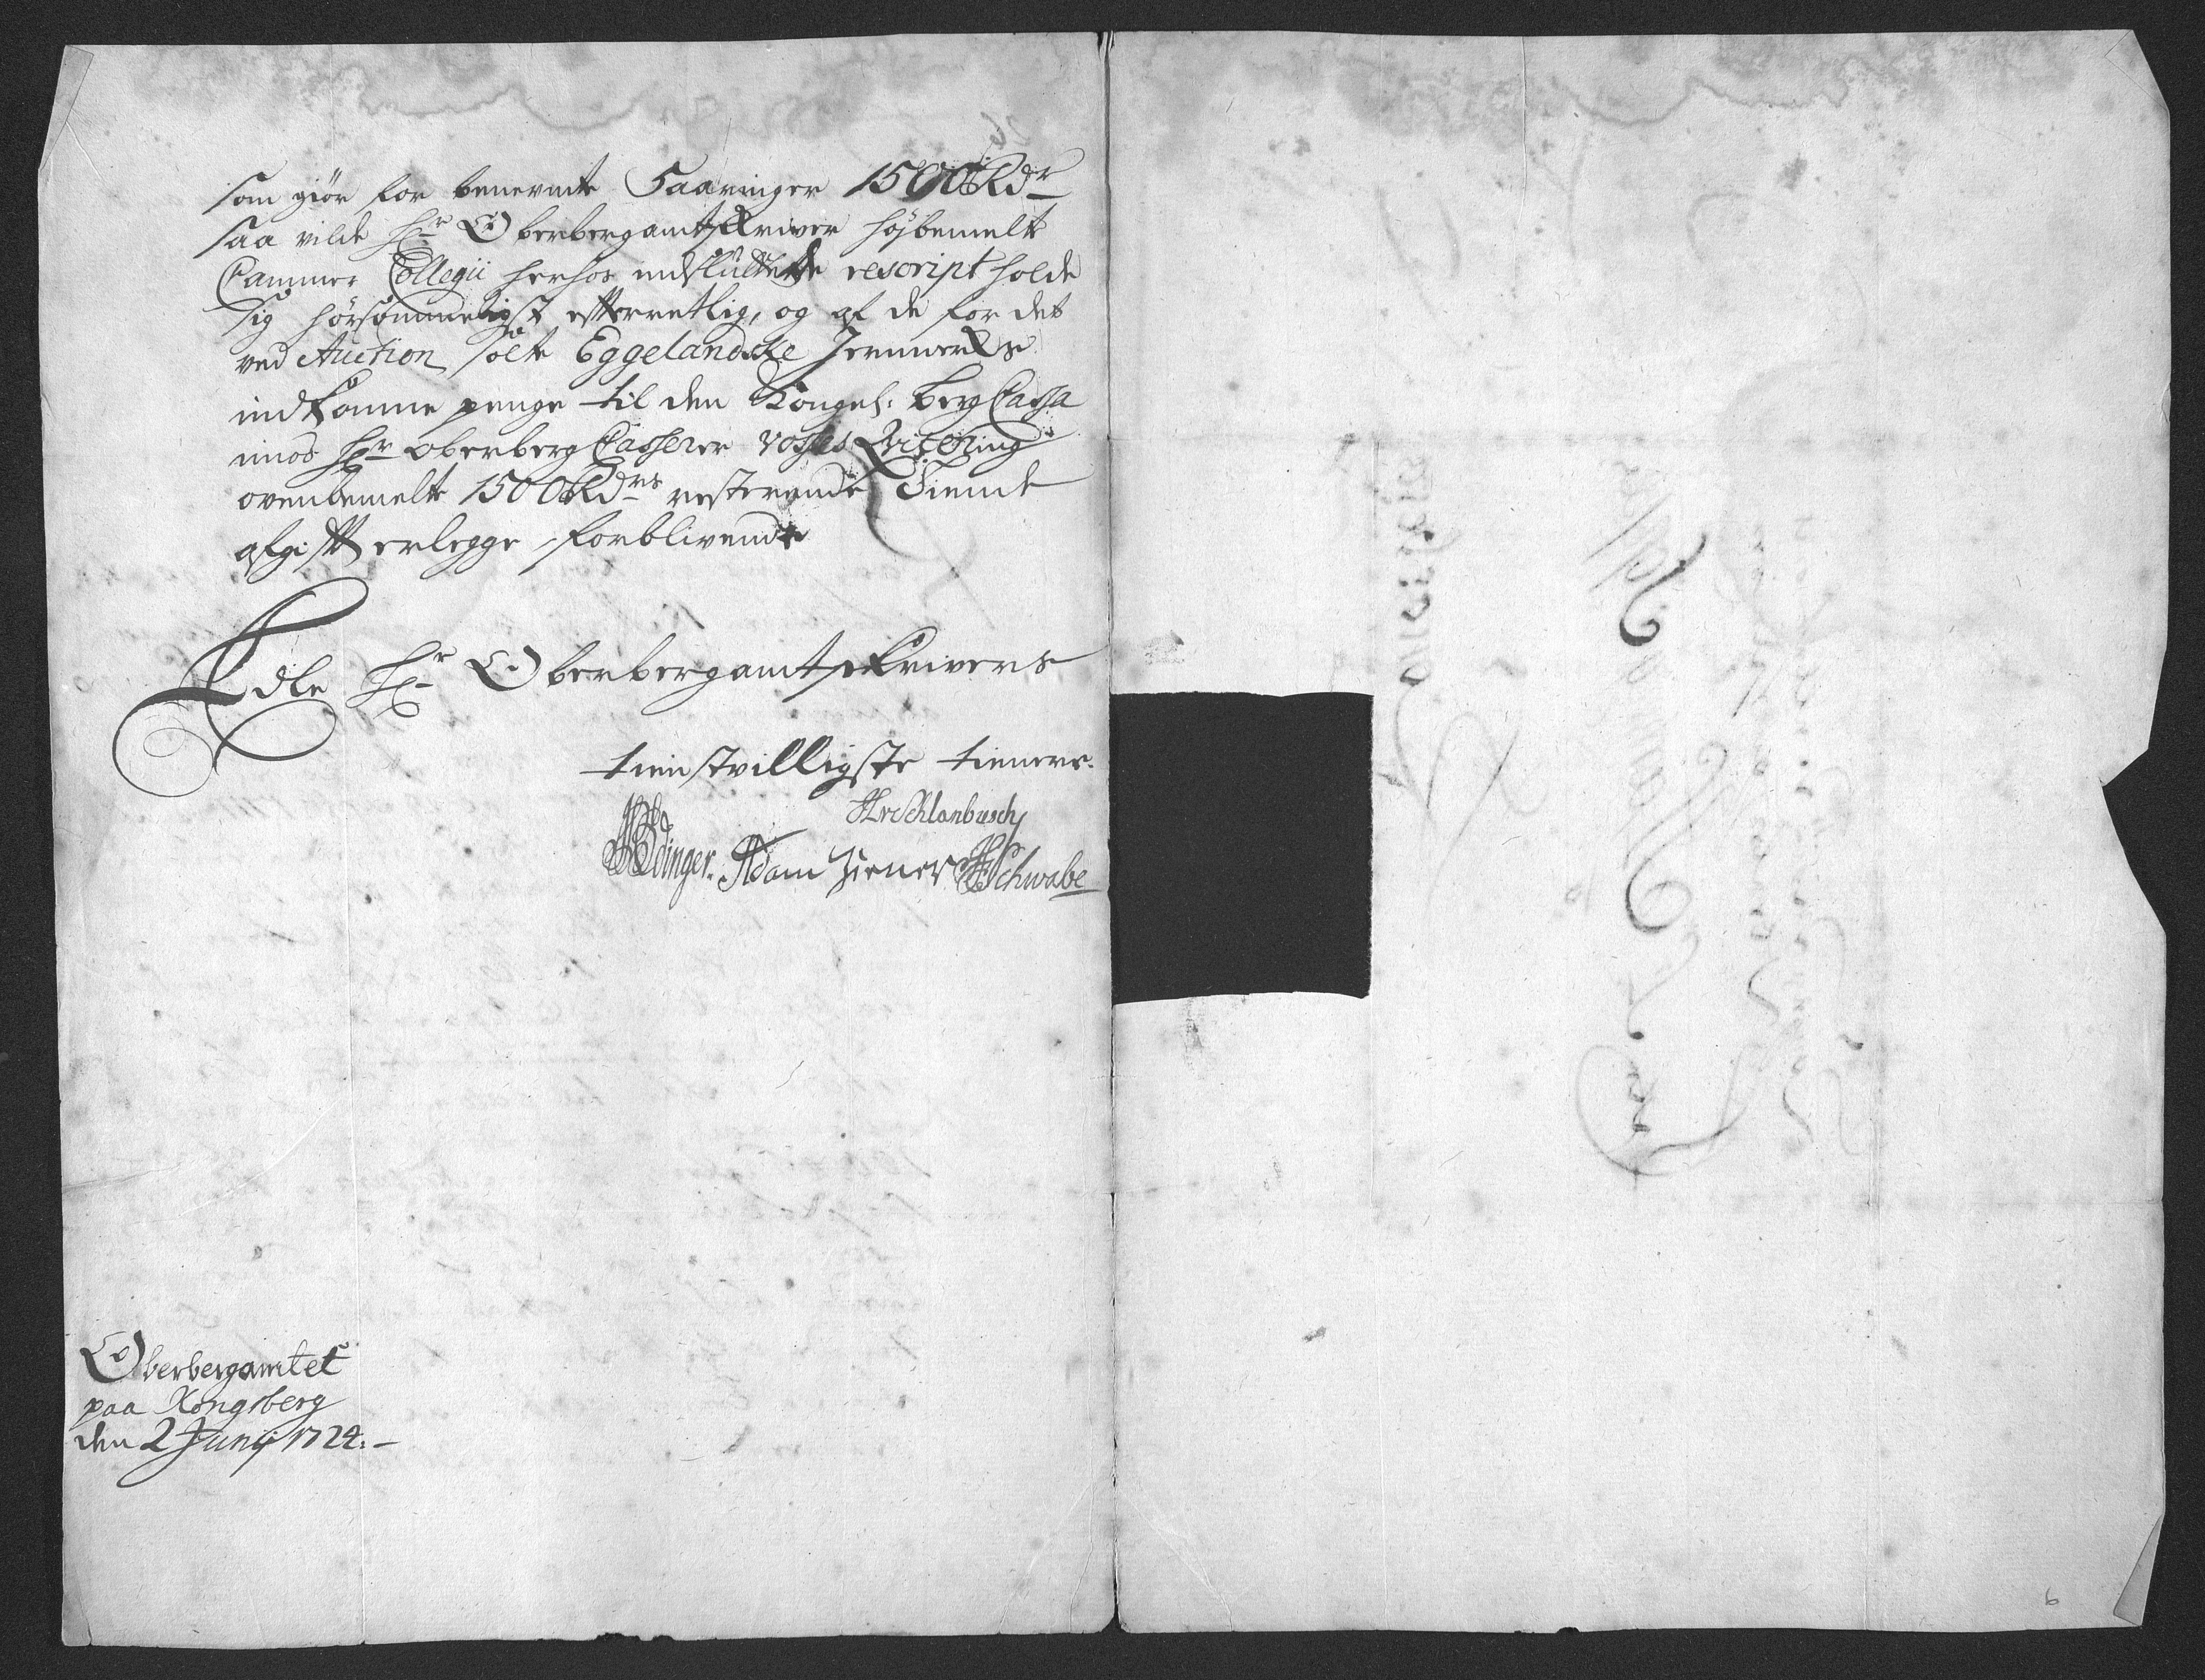 som giör for benevnte Saaringer 1500 Rdr
saa vilde Hr Oberbergamtskriver höjbemelte
Cammer Collegii herhos indsluttede rescript holde
sig hörsommeligst efterretlig, og af de for det
ved Auction solte Eggelandske Jernwerks
indkomne penge til den Kongel: Berg Cassa
imod Hr Oberberg Casserer Vosses Qvitering
ovenbemelte 1500 Rdrs resterende Tiende
afgift erlegge, forblivende
Edle Hr Oberbergamtskrivers
tienstvilligste tienere.
HvSchlanbusch
Edinger. Adam Ziener Schwabe
Oberbergamtet
paa Kongsberg
den 2 Junij 1724.
6